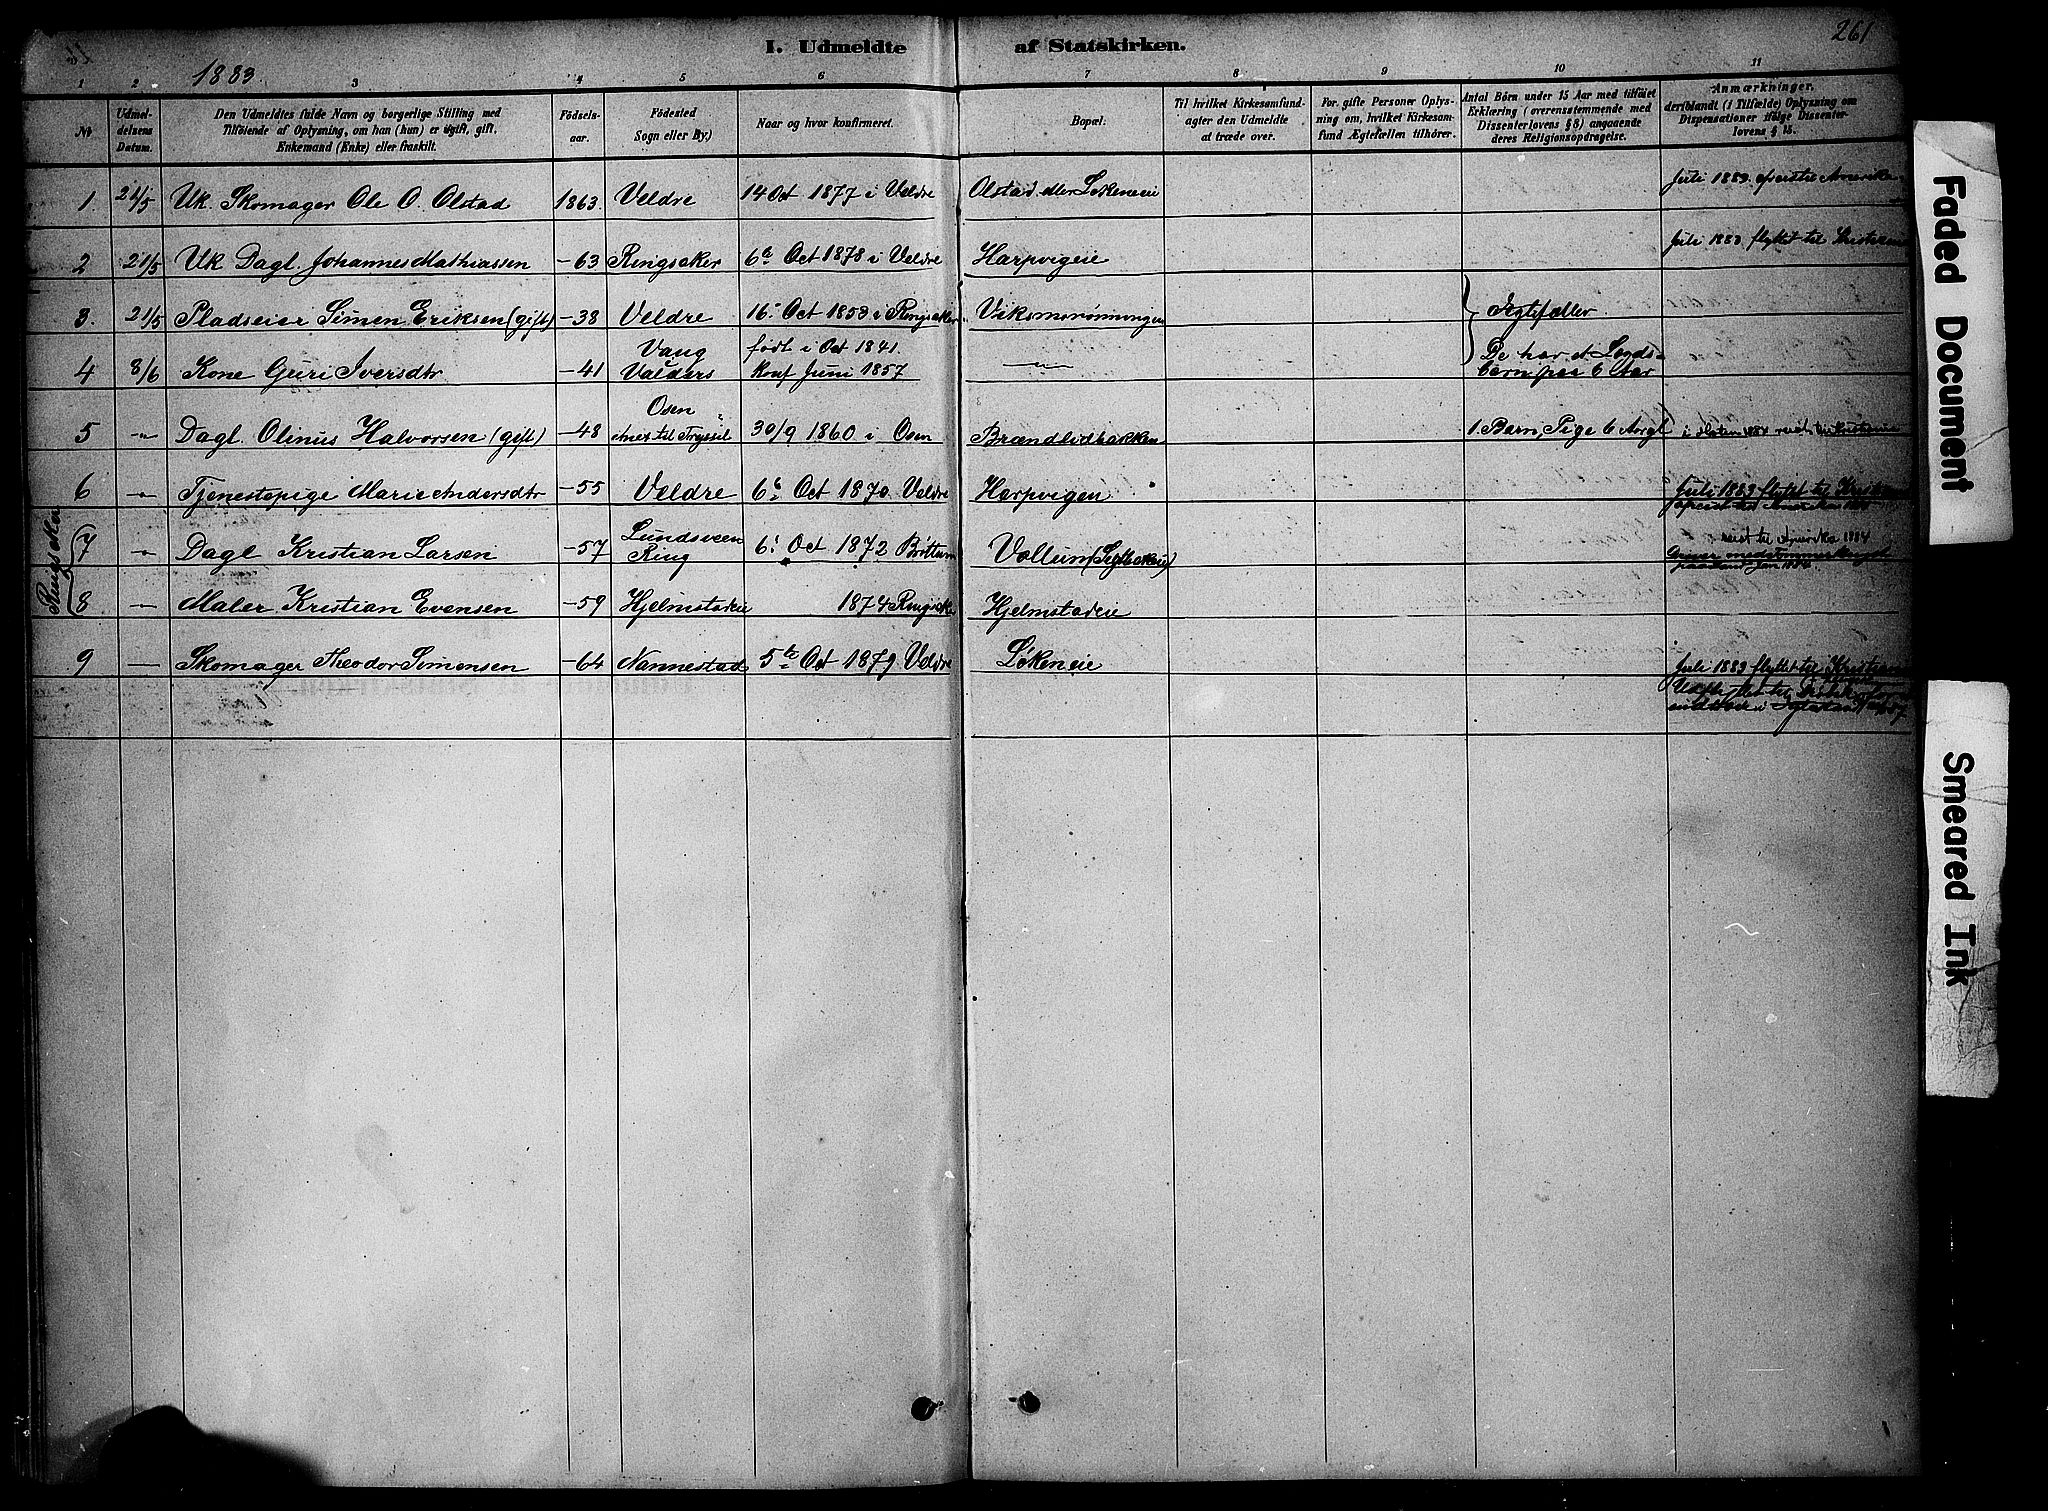 I. Udmeldte af Statskirken.
261
1883
1 2 3 4 5 6 7 8 9 10 11
№ | Udmeldelsens Datum. | Den Udmeldtes fulde Navn og borgerlige Stilling med Tilföiende af Oplysning, om han (hun) er ugift, gift, Enkemand (Enke) eller fraskilt. | Födselsaar. | Födested (Sogn eller By.) | Naar og hvor konfirmeret. | Bopæl. | Til hvilket Kirkesamfund agter den Udmeldte at træde over. | For gifte Personer Oplysning om, hvilket Kirkesamfund Ægtefællen tilhörer. | Antal Börn under 15 Aar med tilföiet Erklæring (overensstemmende med Dissenterlovens § 8) angaaende deres Religionsopdragelse. | Anmærkninger, deriblandt (i Tilfælde) Oplysning om Dispensationer ifölge Dissenterlovens § 15.
1. | 21/5 | Uk. Skomager Ole O. Olstad | 1863. | Veldre | 14 Oct 1877 i Veldre | Olstad eller Løkeneie | Juli 1883 afreist til Amerika
2 | 21/5 | Uk Dagl. Johannes Mathiassen | -63 | Ringsaker | 6te Oct 1878 i Veldre | Harpvigeie | Juli 1883 flyttet til Kristiania
3. | 21/5 | Pladseier Simen Eriksen (gift) | -38 | Veldre | 16. Oct 1853 i Ringsaker | Viksmorønningen | Ægtefæller
4 | 8/6 | Kone Guri Iversdtr | -41 | Vang Valders | født i Oct 1841. Konf Juni 1857 | -"- | De har et Legdsbarn paa 6 Aar
5 | -"- | Dagl. Olinus Halvorsen (gift) | -48 | Osen Anex til Trysil | 30/9 1860 i Osen | Brændlidbakken | 1 Barn, Pige 6 Aar gl | i 1884 reist til
6 | -"- | Tjenestepige Marie Andersdtr | -55 | Veldre | 6te Oct 1870 Veldre | Harpvigen | Juli 1883 flyttet til Kristiania afreist til Amerika
Ringsaker
7 | -"- | Dagl Kristian Larsen | -57 | Lundsveen Ring | 6. Oct 1872 Brøttum | Vollum | reist til Amerika 1884
8 | — | Maler Kristian Evensen | -59 | Hjelmstadeie | 1874 Ringsaker | Hjelmstadeie
9 | — | Skomager Theodor Simensen | -64 | Nannestad | 5te Oct 1879 Veldre | Løkeneie | Juli 1883 flyttet til Kristiania
Faded Document
Smeared Ink